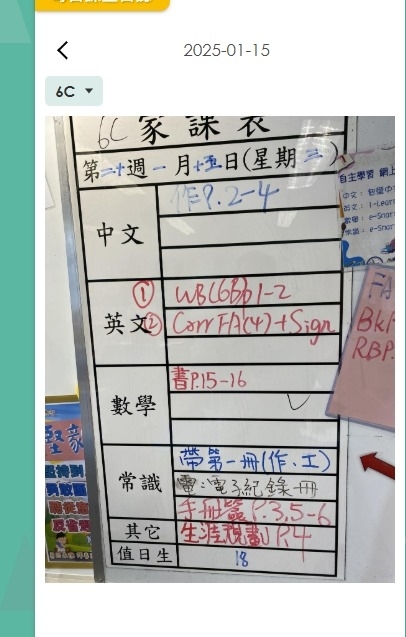 2025-01-15
6C
6C 家課表
第二十週一月十五日(星期三)
中文
作P.2-4
英文
① WB(6B)p1-2
② Corr FA(4)+Sign
數學
書P.15-16
常識
帶第一冊(作、工)
電:電子紀錄冊
其它
手冊簽P.3,5-6
生涯規劃P.4
值日生
18
自主學習 網上
FA
Bk1
RBP.